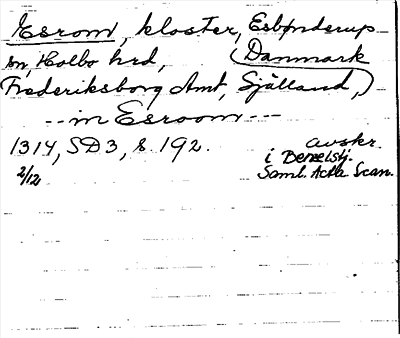 Esrom, kloster, Esbønderup
sn, Holbo hrd, (Danmark
Frederiksborg Amt, Själland,)
-- in Esroom --
1314, SD3, s. 192.
avskr.
i Benzelstj.
2/12
Saml. Acta Scan.